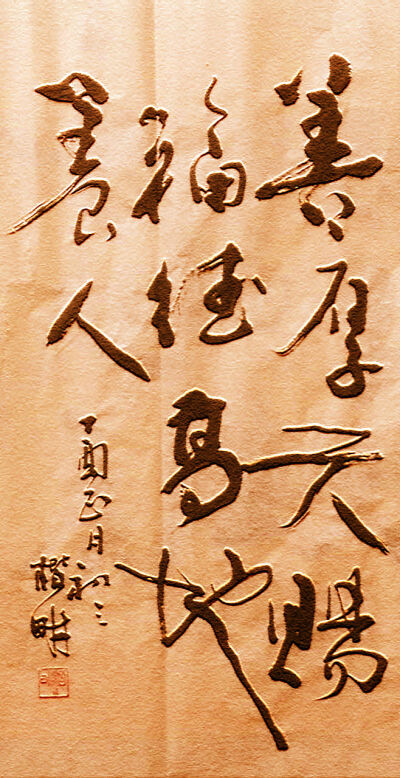 善厚天賜
福德高地
養人
丁酉正月初三
楷畊